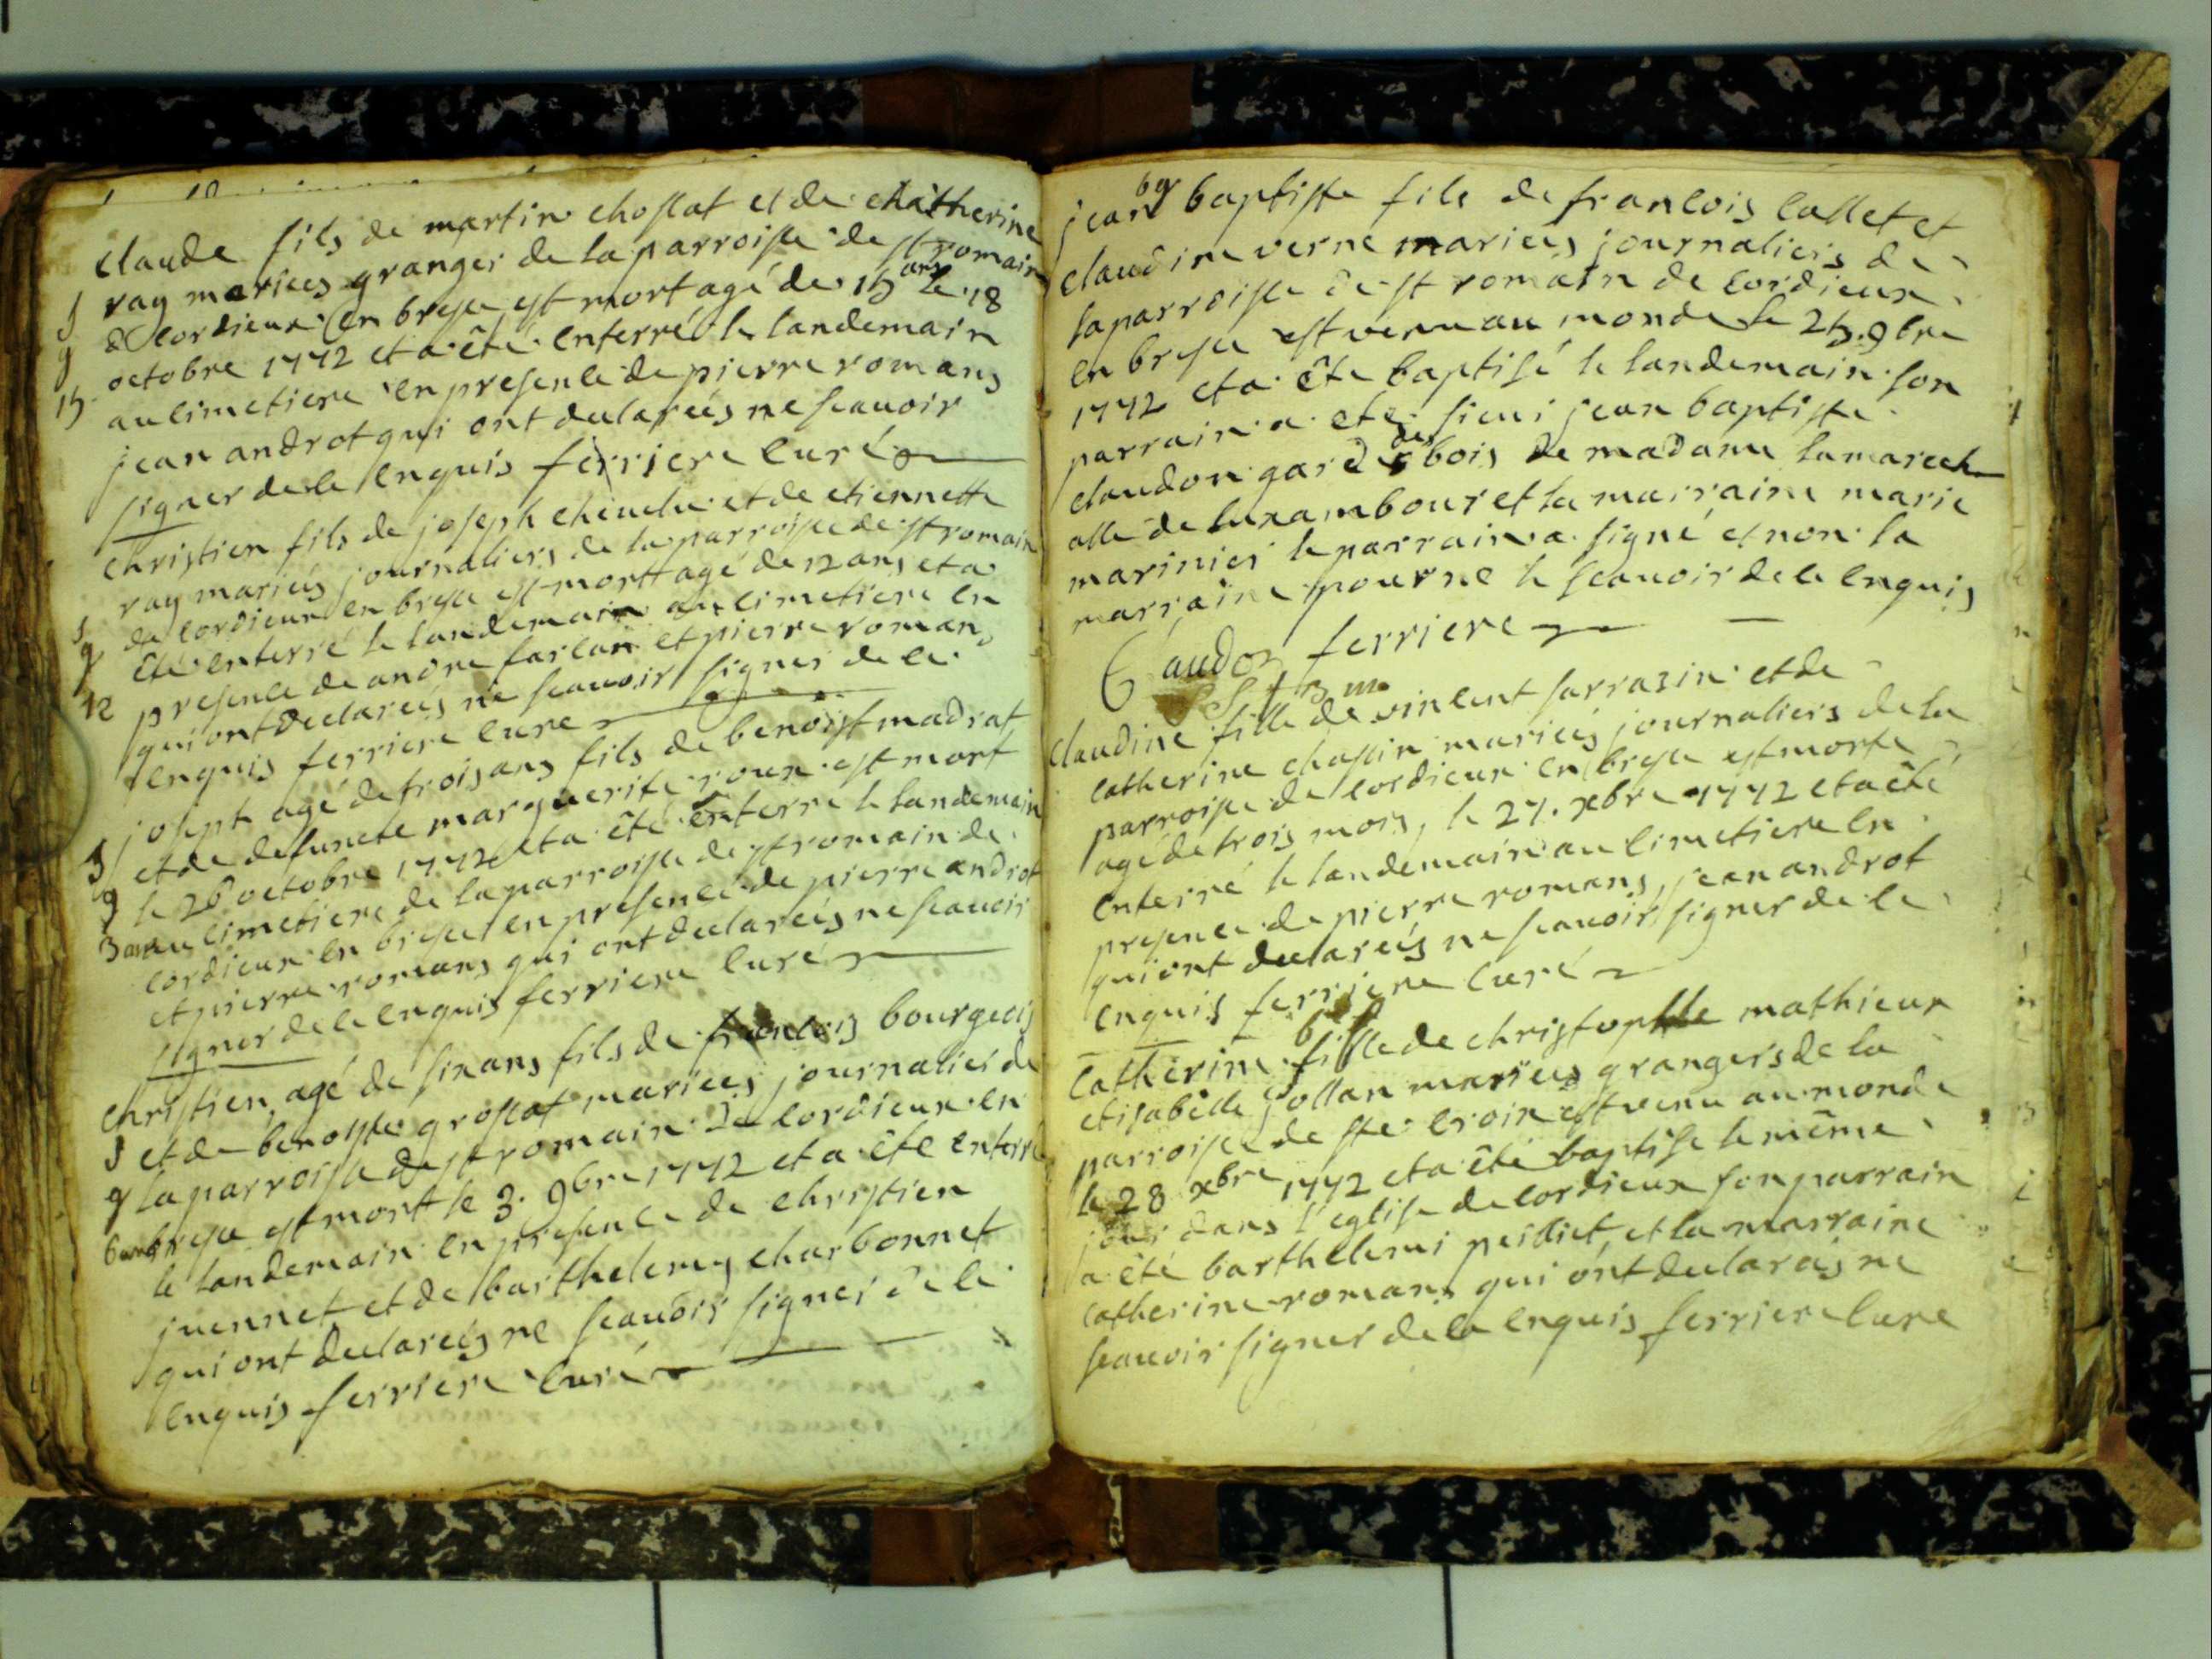 claude fils de martin choslat et de chatherine
ray mariees granger de la parroisse de st romain
S de cordieux en bresse est mort agé de 15 ans le 18
g octobre 1772 et a été enterré le landemain
15 au cimetiere en presence de pierre romans
jean androt qui ont declareés ne scauoir
signer de ce enquis ferriere curé
christien fils de joseph et de etiennette
ray marieés journaliers de la parroisse de st romain
S de cordieux en bresse est mort agé de 12 ans et a
g été enterré le landemain au cimetiere en
12 presence de andre farlan et pierre romans
qui ont declareés ne scauoir signer de ce
enquis ferriere cure
joseph agé de trois ans fils de benoist madrat
S et de defuncte marguerite roux est mort
g le 26 octobre 1772 et a été enterré le landemain
3 ans au cimetiere de la parroisse de st romain de
cordieux en bresse en presence de pierre androt
et pierre romans qui ont declareés ne scauoir
signer de ce enquis ferriere curé
christien agé de six ans fils de francois bourgeois
S et de benoiste groslat marieés journalier de
g la parroisse de st romain de cordieux en
6 ans bresse est mort le 3. 9bre 1772 et a été enterré
le landemain en presence de christien
juennet et de barthelemy charbonnet
qui ont declareés ne scauoir signer de ce
enquis ferriere curé
bg
jean baptiste fils de francois collet et
claudine verne marieés journaliers de
la parroisse de st romain de cordieux
en bresse est venu au monde le 25. 9bre
1772 et a été baptisé le landemain son
parrain a ete sieur jean baptiste
claudon garde des bois de madame la marech
alle de luxambour et la marraine marie
marinier le parrain a signé et non la
marraine pour ne le scauoir de ce enquis
Claudon ferriere
S f 3 m
claudine fille de vincent sarrazin et de
catherine chassin marieés journaliers de la
parroisse de cordieux en bresse est morte
agé de trois mois, le 27. xbre 1772 et a été
enterré le landemain au cimetiere en
presence de pierre romans, jean androt
qui ont declareés ne scauoir signer de ce
enquis ferriere curé
b f
catherine fille de christophle mathieux
et isabelle jollan marieés grangers de la
parroisse de ste croix est venu au monde
le 28 xbre 1772 et a été baptisé le même
jour dans l'eglise de cordieux son parrain
a été barthelemi peidiet et la marraine
catherine romans qui ont declareés ne
scauoir signer de ce enquis ferriere cure